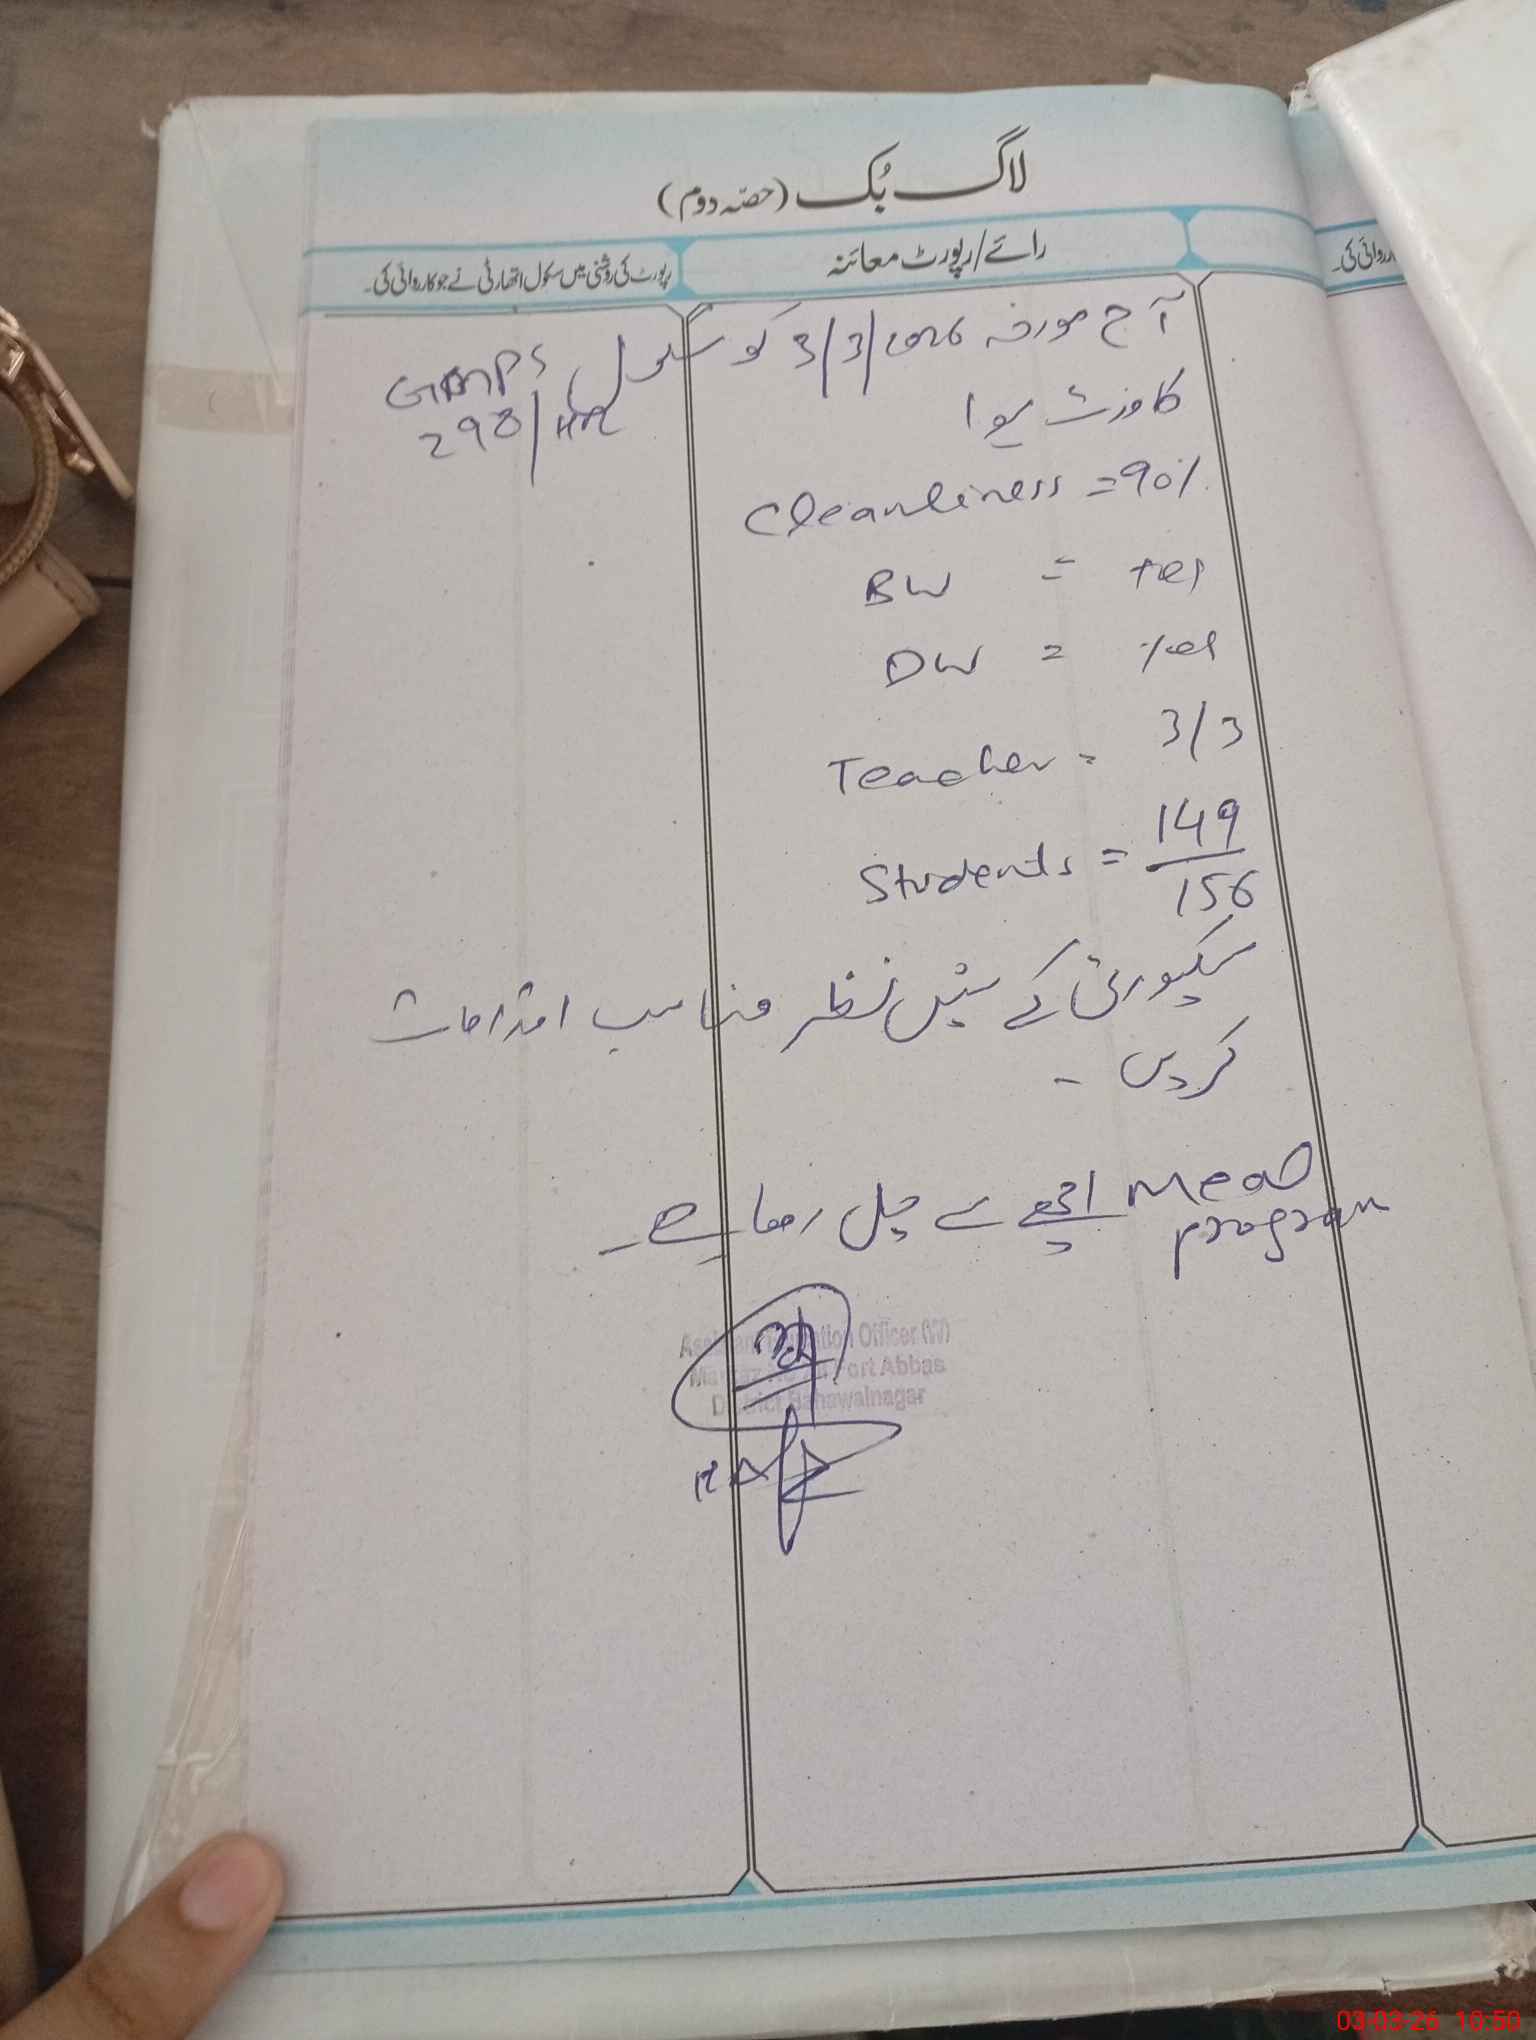 لاگ بُک (حصّہ دوم)
رائے/رپورٹ معائنہ
رپورٹ کی روشنی میں سکول اتھارٹی نے جو کارروائی کی۔
آج مورخہ 3/3/2026 کو سکول GMPS
298/HR
کا وزٹ ہوا
Cleanliness = 90%
BW = yes
DW = yes
Teacher = 3/3
Students = 149/156
سیکیورٹی کے پیش نظر مناسب اقدامات
کریں۔
Meal program اچھے سے چل رہا ہے۔
Assistant Education Officer (W)
Fort Abbas
District Bahawalnagar
03-03-26 10:50